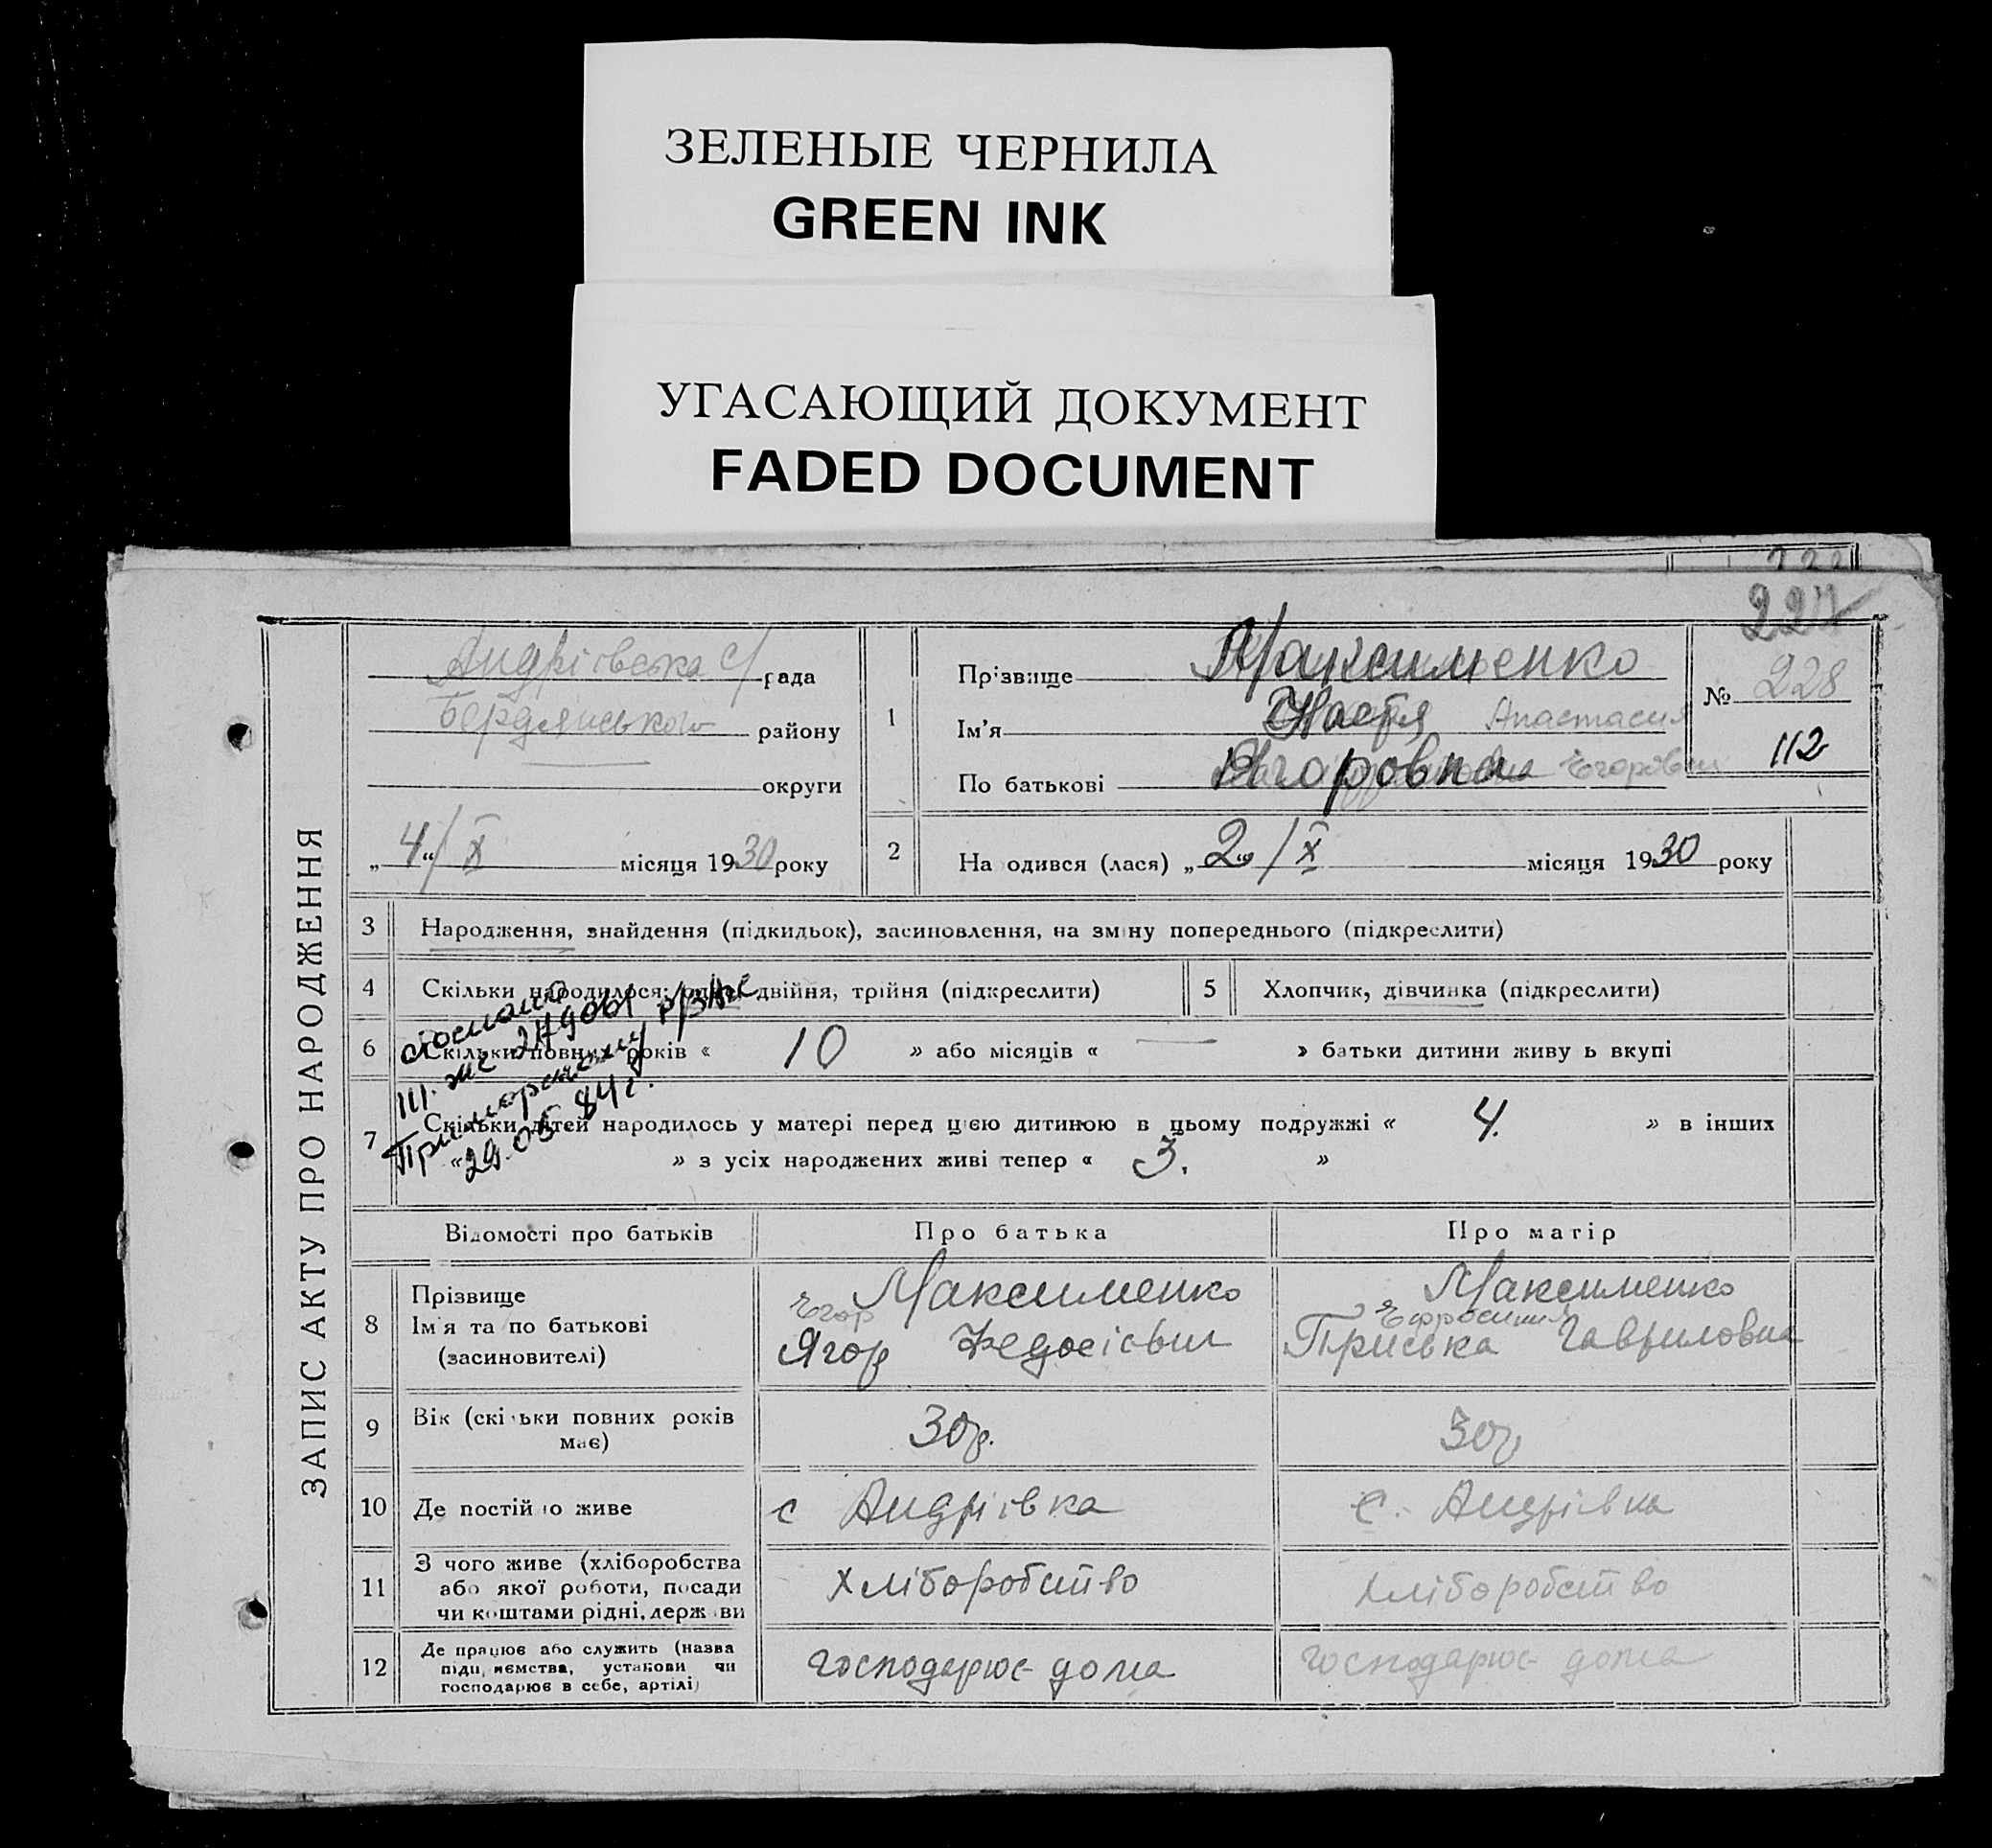 ЗЕЛЕНЫЕ ЧЕРНИЛА
GREEN INK
УГАСАЮЩИЙ ДОКУМЕНТ
FADED DOCUMENT
ЗАПИС АКТУ ПРО НАРОДЖЕННЯ
Андрівська с/рада
Бердянського району
округи
„4“/X місяця 1930 року
1
Прізвище Максименко
Ім'я Настя Анастасия
По батькові Ягоровна Егоровна
№ 228
112
2 На одився (лася) „2“/X місяця 1930 року
3 Народження, знайдення (підкидьок), засиновлення, на зміну попереднього (підкреслити)
4 Скільки народилося: двійня, трійня (підкреслити)
5 Хлопчик, дівчинка (підкреслити)
6 Скільки повних років « 10 » або місяців « — » батьки дитини живу ь вкупі
7 Скільки дітей народилось у матері перед цією дитиною в цьому подружжі « 4. » в інших
« » з усіх народжених живі тепер « 3. »
29.05.84г.
Відомості про батьків
Про батька
Про матір
8 Прізвище
Ім'я та по батькові
(засиновителі)
Максименко
Егор
Ягор Федосієвич
Максименко
Ефросиния
Приська Гавриловна
9 Вік (скільки повних років має)
30р.
30р
10 Де постійно живе
с Андрівка
с. Андрівка
11 З чого живе (хліборобства
або якої роботи, посади
чи коштами рідні, держави
Хліборобство
Хліборобство
12 Де працює або служить (назва
підприємства, установи чи
господарює в себе, артілі)
господарює дома
господарює дома